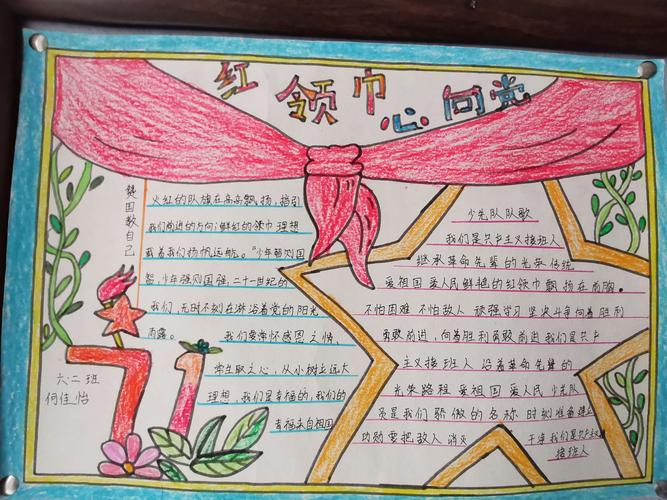 红领巾心向党
赞国教自己
火红的队旗在高高飘扬,指引
我们前进的方向;鲜红的领巾理想
载着我们扬帆远航。"少年强则国
智,少年强则国强,二十一世纪的
我们,无时不刻在沐浴着党的阳光
雨露。 我们要常怀感恩之情,
常生敬之心,从小树立远大
理想,我们是幸福的,我们的
幸福来自祖国
71
六二班
何佳怡
少先队队歌
我们是共产主义接班人
继承革命先辈的光荣传统
爱祖国 爱人民 鲜艳的红领巾飘扬在前胸。
不怕困难 不怕敌人 顽强学习 坚决斗争向着胜利
勇敢前进,向着胜利勇敢前进我们是共产
主义接班人 沿着革命先辈的
光荣路程 爱祖国 爱人民 少先队
员是我们骄傲的名称 时刻准备建立
功勋要把敌人 消灭
干净我们是共产主义
接班人